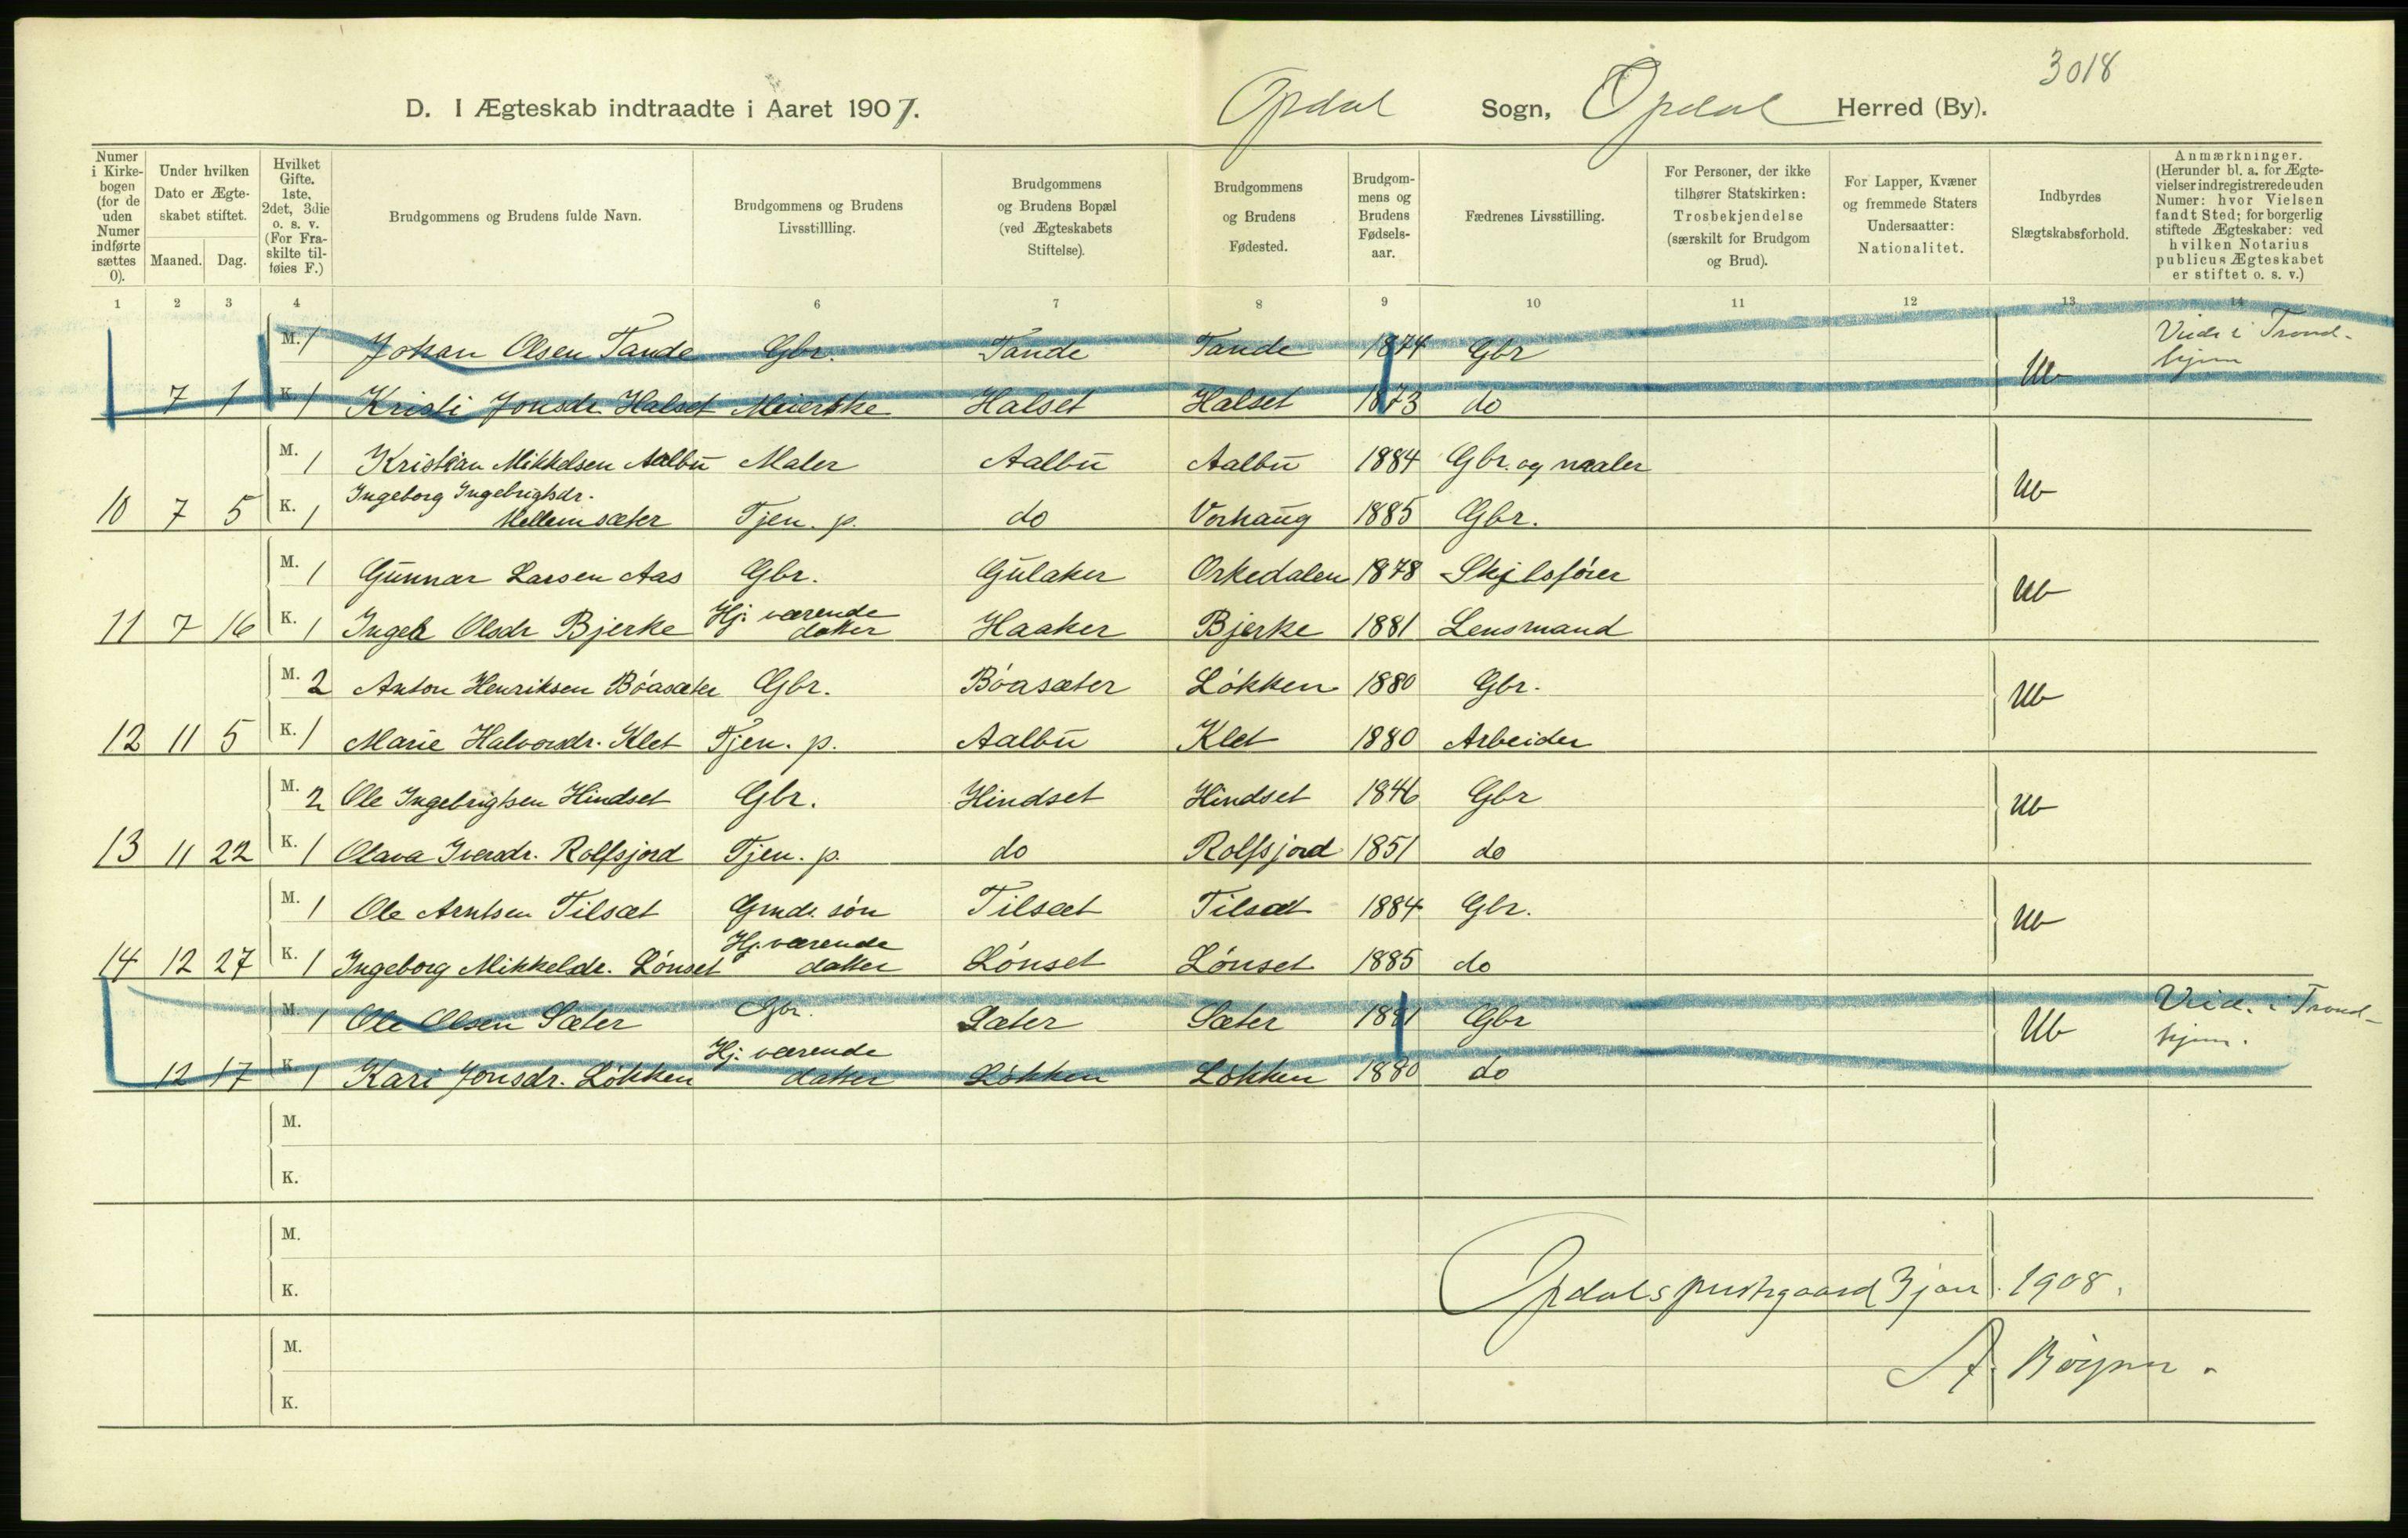 3018
D. I Ægteskab indtraadte i Aaret 1907. Opdal Sogn, Opdal Herred (By).
Numer i Kirke- bogen (for de uden Numer indførte sættes 0).
Under hvilken Dato er Ægte- skabet stiftet.
Maaned. Dag.
Hvilket Gifte. 1ste, 2det, 3die o. s. v. (For Fra- skilte til- føies F.)
Brudgommens og Brudens fulde Navn.
Brudgommens og Brudens Livsstillling.
Brudgommens og Brudens Bopæl (ved Ægteskabets Stiftelse).
Brudgommens og Brudens Fødested.
Brudgom- mens og Brudens Fødsels- aar.
Fædrenes Livsstilling.
For Personer, der ikke tilhører Statskirken: Trosbekjendelse (særskilt for Brudgom og Brud).
For Lapper, Kvæner og fremmede Staters Undersaatter: Nationalitet.
Indbyrdes Slægtskabsforhold.
Anmærkninger. (Herunder bl. a. for Ægte- vielser indregistrerede uden Numer: hvor Vielsen fandt Sted; for borgerlig stiftede Ægteskaber: ved hvilken Notarius publicus Ægteskabet er stiftet o. s. v.)
1 2 3 4 6 7 8 9 10 11 12 13 14
M. 1 Johan Olsen Tande Gbr. Tande Tande 1874 Gbr Ub Viede i Trond-
hjem
7 1 K. 1 Kristi Jonsdr. Halset Meierske Halset Halset 1873 do
M. 1 Kristian Mikkelsen Aalbu Maler Aalbu Aalbu 1884 Gbr. og maler Ub
Ingeborg Ingebrigtsdr.
10 7 5 K. 1 Mellemsæter Tjen. p. do Vorhaug 1885 Gbr.
M. 1 Gunnar Larsen Aas Gbr. Gulaker Orkedalen 1878 Skibsfører Ub
Hj. værende
11 7 16 K. 1 Ingeb Olsdr Bjerke datter Haaker Bjerke 1881 Lensmand
M. 2 Anton Henriksen Bóasæter Gbr. Bóasæter Løkken 1880 Gbr. Ub
12 11 5 K. 1 Marie Halvorsdr. Klet Tjen. p. Aalbu Klet 1880 Arbeider
M. 2 Ole Ingebrigtsen Hindset Gbr. Hindset Hindset 1846 Gbr Ub
13 11 22 K. 1 Olava Iversdr. Rolfsjord Tjen. p. do Rolfsjord 1851 do
M. 1 Ole Arntsen Tilsæt Grndr. søn Tilsæt Tilsæt 1884 Gbr. Ub
Hj. værende
14 12 27 K. 1 Ingeborg Mikkelsdr. Lønset datter Lønset Lønset 1885 do
M. 1 Ole Olsen Sæter Gbr. Sæter Sæter 1881 Gbr Ub Vied. i Trond-
hjem.
Hj. værende
12 17 K. 1 Kari Jonsdr. Løkken datter Løkken Løkken 1880 do
M.
K.
M.
K. Opdals prestegaard 3 jan. 1908.
M.
K.